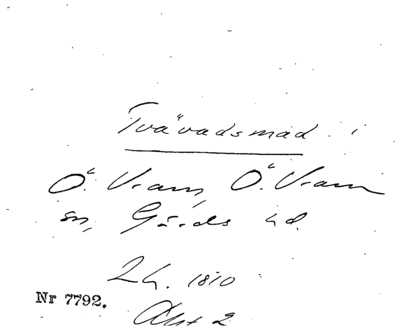 Tvävadsmad i
Ö. Vram, Ö. Vram
sn, Gärds hd.
2 h. 1810
Nr 7792.
Akt 2